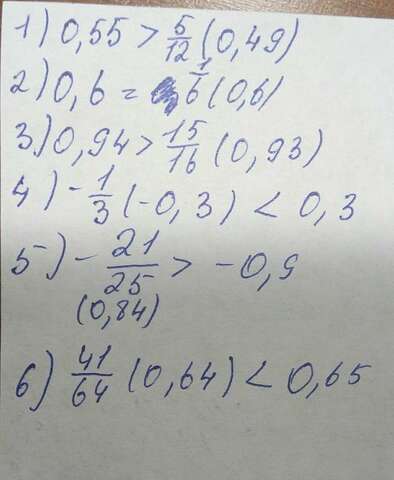 1) 0,55 > 5/12 (0,49)
2) 0,6 = 1/6 (0,6)
3) 0,94 > 15/16 (0,93)
4) - 1/3 (-0,3) < 0,3
5) - 21/25 > -0,9
(0,84)
6) 41/64 (0,64) < 0,65